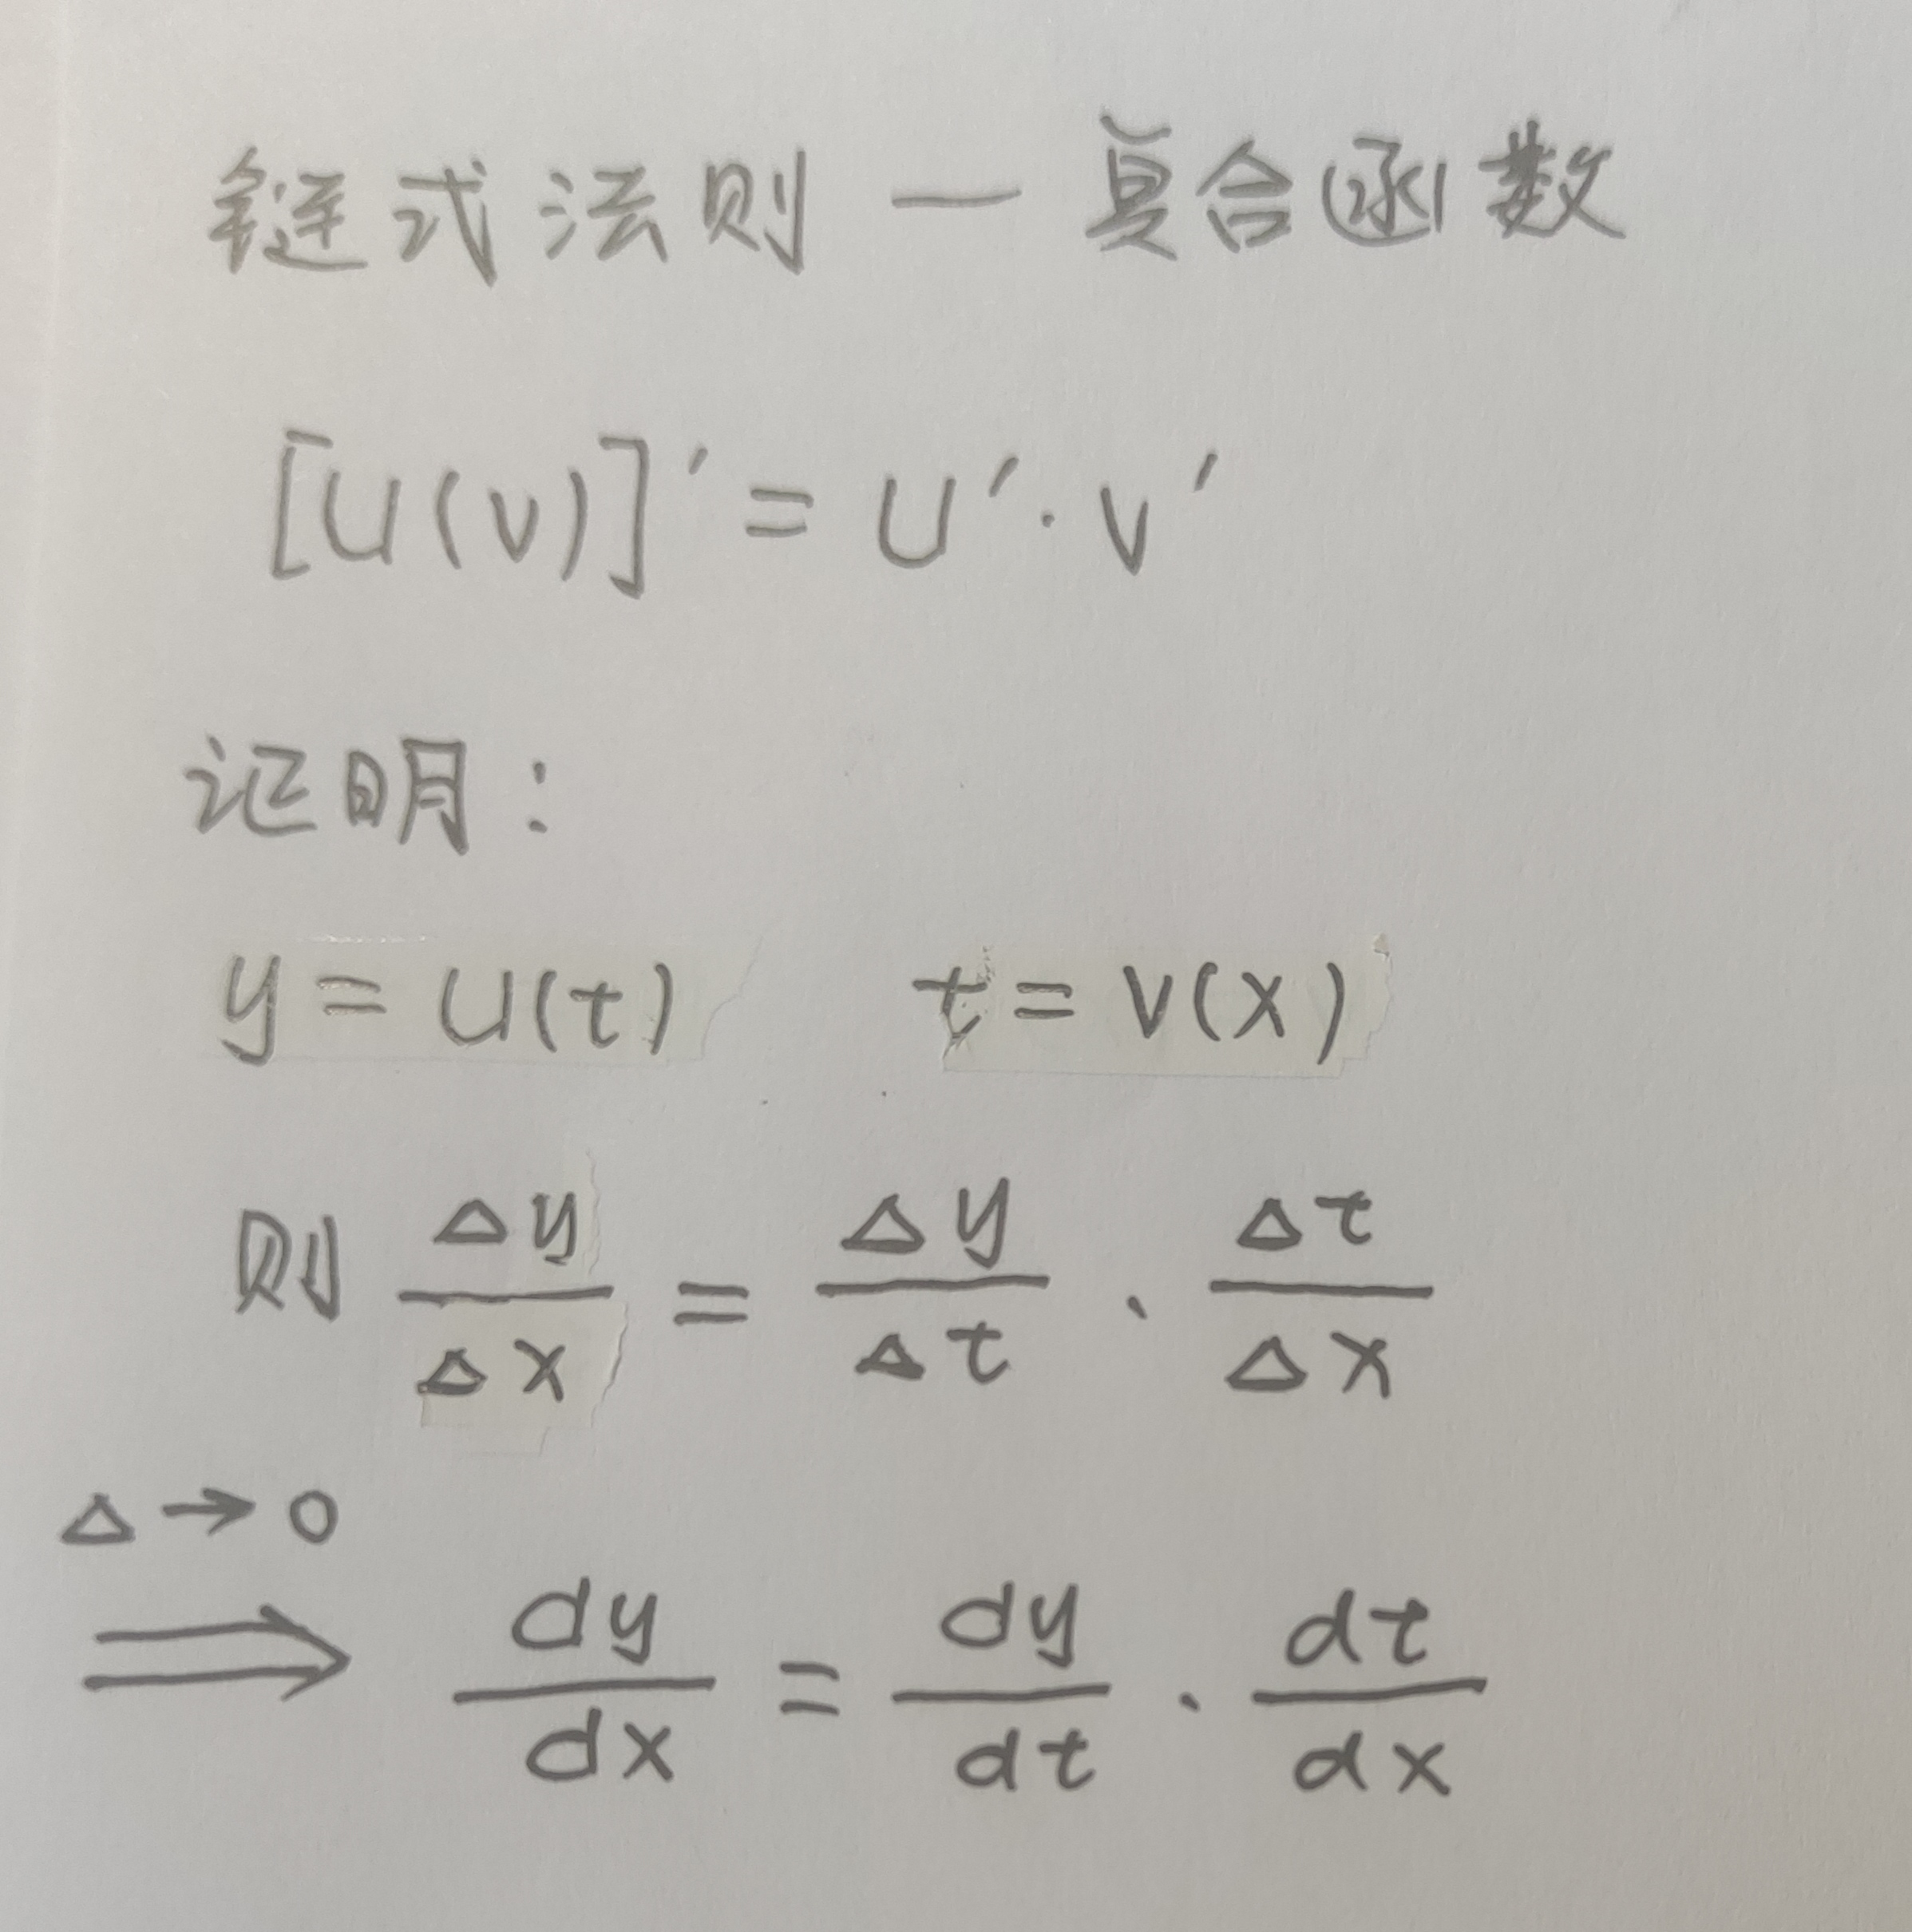 链式法则 — 复合函数
[U(V)]' = U'·V'
证明:
y = U(t) t = V(x)
则 Δy/Δx = Δy/Δt · Δt/Δx
Δ→0
⟹ dy/dx = dy/dt · dt/dx